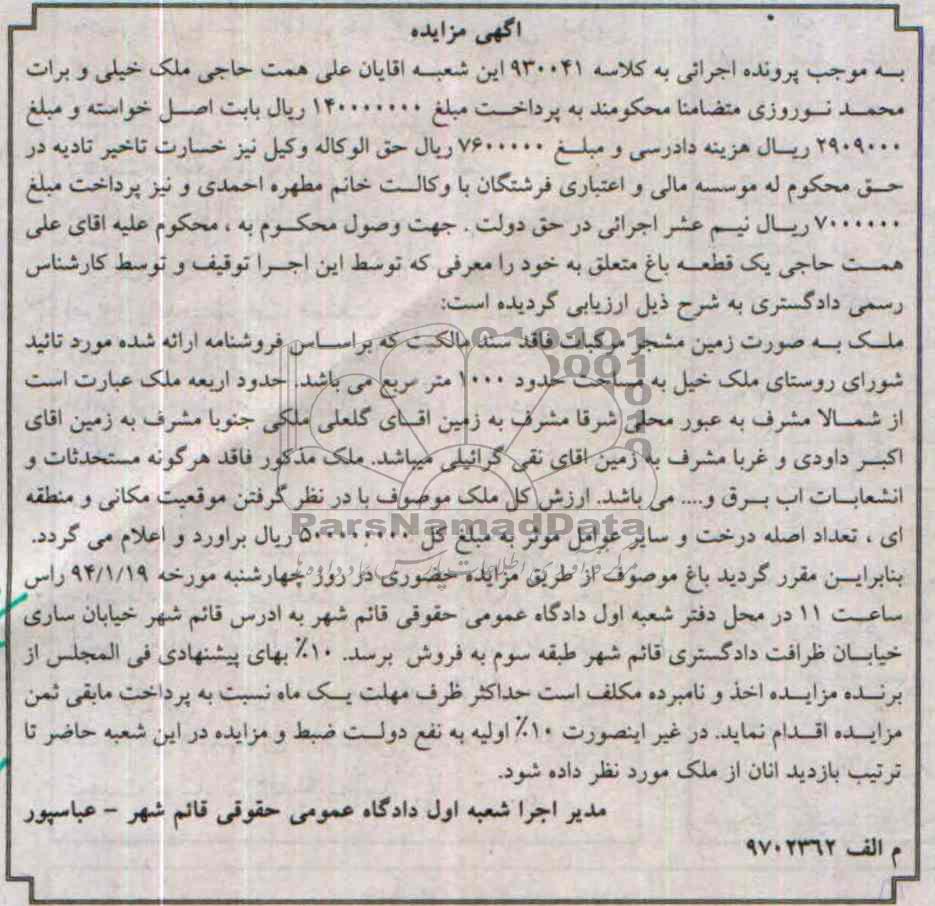 اگهی مزایده
به موجب پرونده اجرائی به کلاسه ۹۳۰۰۴۱ این شعبه اقایان علی همت حاجی ملک خیلی و برات
محمد نوروزی متضامنا محکومند به پرداخت مبلغ ۱۴۰۰۰۰۰۰۰ ریال بابت اصل خواسته و مبلغ
۲۹۰۹۰۰۰ ریال هزینه دادرسی و مبلغ ۷۶۰۰۰۰۰ ریال حق الوکاله وکیل نیز خسارت تاخیر تادیه در
حق محکوم له موسسه مالی و اعتباری فرشتگان با وکالت خانم مطهره احمدی و نیز پرداخت مبلغ
۷۰۰۰۰۰۰ ریال نیم عشر اجرائی در حق دولت . جهت وصول محکوم به ، محکوم علیه اقای علی
همت حاجی یک قطعه باغ متعلق به خود را معرفی که توسط این اجرا توقیف و توسط کارشناس
رسمی دادگستری به شرح ذیل ارزیابی گردیده است:
ملک به صورت زمین مشجر مرکبات فاقد سند مالکیت که براساس فروشنامه ارائه شده مورد تائید
شورای روستای ملک خیل به مساحت حدود ۱۰۰۰ متر مربع می باشد. حدود اربعه ملک عبارت است
از شمالا مشرف به عبور محلی شرقا مشرف به زمین اقای گلعلی ملکی جنوبا مشرف به زمین اقای
اکبر داودی و غربا مشرف به زمین اقای نقی گرائیلی میباشد. ملک مذکور فاقد هرگونه مستحدثات و
انشعابات اب برق و.... می باشد. ارزش کل ملک موصوف با در نظر گرفتن موقعیت مکانی و منطقه
ای ، تعداد اصله درخت و سایر عوامل موثر به مبلغ کل ۵۰۰۰۰۰۰۰۰ ریال براورد و اعلام می گردد.
بنابراین مقرر گردید باغ موصوف از طریق مزایده حضوری در روز چهارشنبه مورخه ۹۴/۱/۱۹ راس
ساعت ۱۱ در محل دفتر شعبه اول دادگاه عمومی حقوقی قائم شهر به ادرس قائم شهر خیابان ساری
خیابان ظرافت دادگستری قائم شهر طبقه سوم به فروش برسد. ۱۰٪ بهای پیشنهادی فی المجلس از
برنده مزایده اخذ و نامبرده مکلف است حداکثر ظرف مهلت یک ماه نسبت به پرداخت مابقی ثمن
مزایده اقدام نماید. در غیر اینصورت ۱۰٪ اولیه به نفع دولت ضبط و مزایده در این شعبه حاضر تا
ترتیب بازدید انان از ملک مورد نظر داده شود.
مدیر اجرا شعبه اول دادگاه عمومی حقوقی قائم شهر – عباسپور
م الف ۹۷۰۲۳۶۲
ParsNamadData